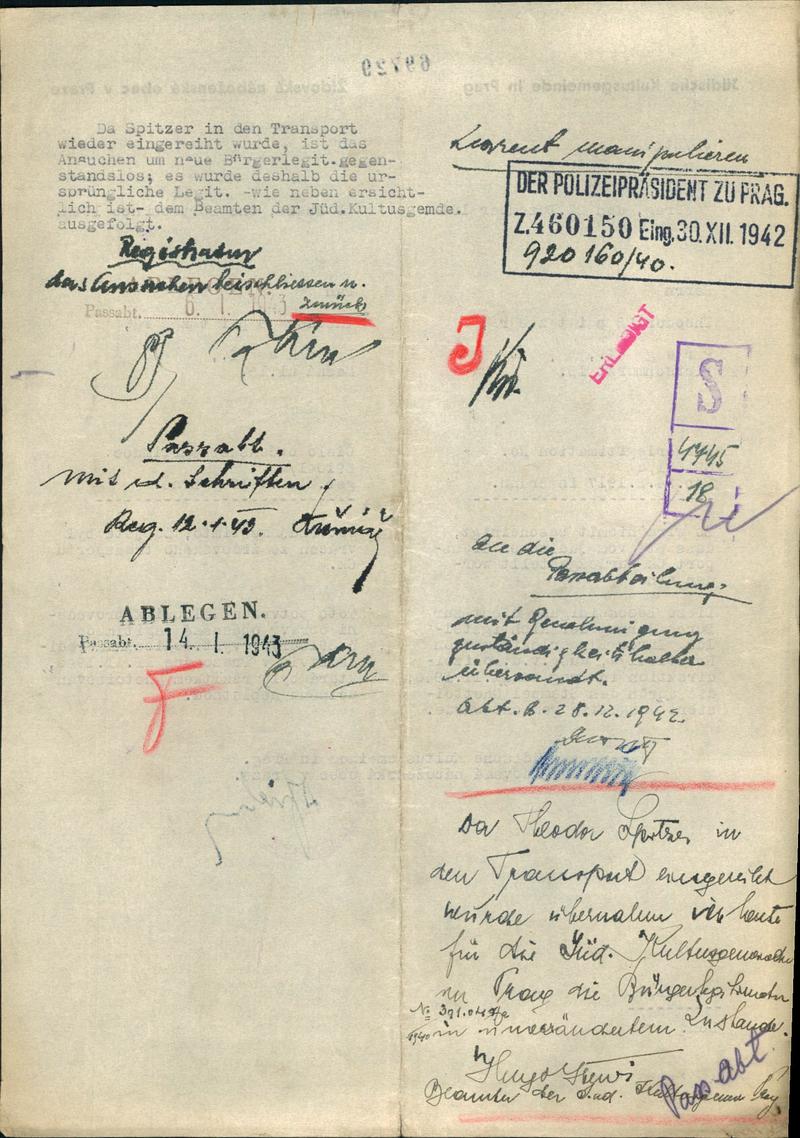 69729
Židovská náboženská obec v Praze
Jüdische Kultusgemeinde in Prag
Da Spitzer in den Transport
wieder eingereiht wurde, ist das
Ansuchen um neue Bürgerlegit.gegen-
standslos; es wurde deshalb die ur-
sprüngliche Legit. -wie neben ersicht-
lich ist- dem Beamten der Jüd.Kultusgemde.
ausgefolgt.
Registratur
das Ansuchen beischliessen u.
zurück
Passabt. 6. I. 1943
Passabt.
mit d. Schriften
Reg. 12.1.43.
ABLEGEN.
Passabt. 14. I. 1943
F
Kurrent manipulieren
DER POLIZEIPRÄSIDENT ZU PRAG.
Z.460150 Eing. 30. XII. 1942
920 160/40.
J
ERLEDIGT
S
4745
18
An die
Passabteilung
mit Genehmigung
zuständigkeitshalber
übersandt.
Abt. B. 28.12.1942.
Da Theodor Spitzer in
den Transport eingereiht
wurde übernahm ich heute
für die Jüd. Kultusgemeinde
in Prag die Bürgerlegitimation
in unverändertem Zustande.
Hugo
Beamter der Jüd. Kultusgemeinde Prag
Passabt.